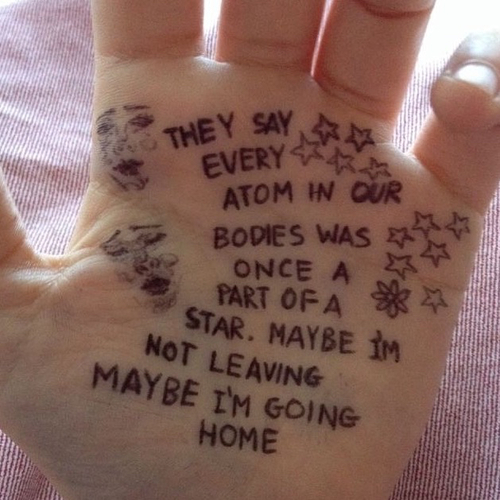 THEY SAY
EVERY
ATOM IN OUR
BODIES WAS
ONCE A
PART OF A
STAR. MAYBE I'M
NOT LEAVING
MAYBE I'M GOING
HOME